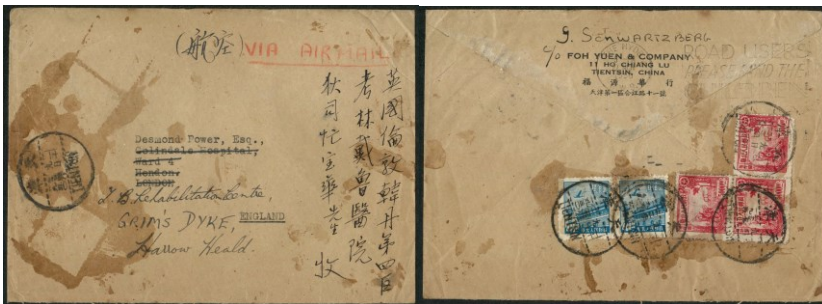 (航空) VIA AIR MAIL
英國倫敦韓丹第四
考林戴魯醫院
狄司忙宝華先生 收
Desmond Power, Esq.,
Colindale Hospital,
Ward 4
Hendon,
LONDON
T.B. Rehabilitation Centre,
GRIM'S DYKE, ENGLAND
Harrow Weald.
TIENTSIN
SCHWARTZBERG
c/o FOH YUEN & COMPANY
11 HO CHIANG LU
TIENTSIN, CHINA
福源華行
天津第一區合江路十一號
ROAD USERS
THE